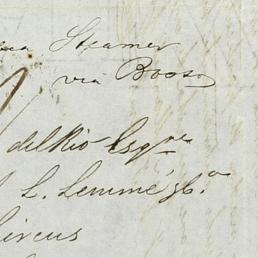 Steamer
via Boos
del Rio Esqre
L. Lemmé & Co
Circus